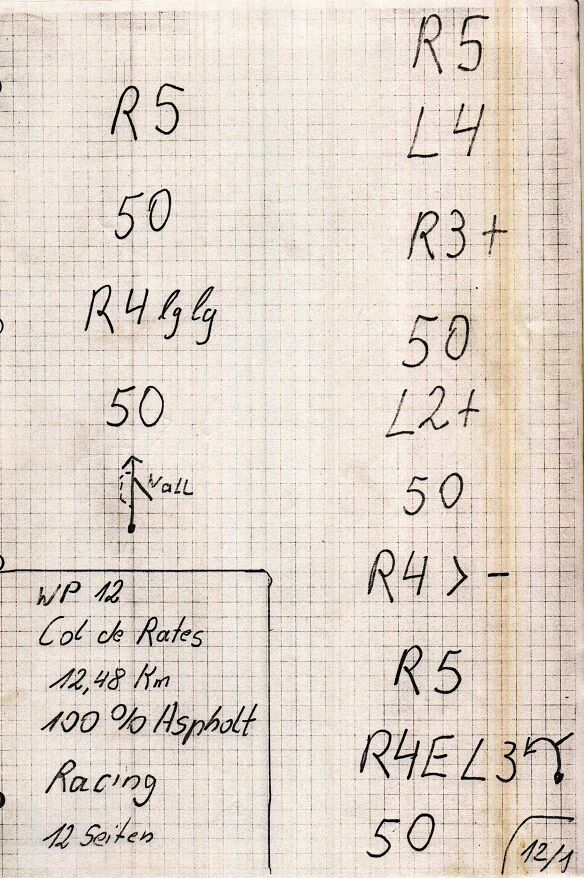 R5
50
R4 lg lg
50
Wall
WP 12
Col de Rates
12,48 Km
100 % Aspholt
Racing
12 Seiten
R5
L4
R3+
50
L2+
50
R4 > -
R5
R4E L3
50
12/1